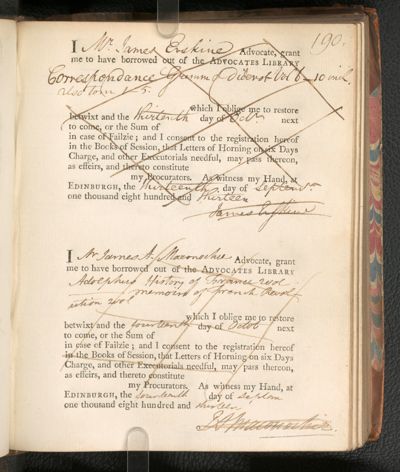 190.
I Mr. James Erskine Advocate, grant
me to have borrowed out of the ADVOCATES LIBRARY
Correspondance Grimm & Diderot Vol 6 - 10 incl.
also tom 5.
which I oblige me to restore
betwixt and the thirtenth day of Octr. next
to come, or the Sum of
in case of Failzie; and I consent to the registration hereof
in the Books of Session, that Letters of Horning on six Days
Charge, and other Executorials needful, may pass thereon,
as effeirs, and thereto constitute
my Procurators. As witness my Hand, at
EDINBURGH, the thirteenth day of Septemr.
one thousand eight hundred and thirteen
James Erskine
I Mr James A. Maconochie Advocate, grant
me to have borrowed out of the ADVOCATES LIBRARY
Adolphus History of France 2 vol.
memoirs of french Revol
ution 2 vol
which I oblige me to restore
betwixt and the fourteenth day of Octob next
to come, or the Sum of
in case of Failzie; and I consent to the registration hereof
in the Books of Session, that Letters of Horning on six Days
Charge, and other Executorials needful, may pass thereon,
as effeirs, and thereto constitute
my Procurators. As witness my Hand, at
EDINBURGH, the fourteenth day of Septem
one thousand eight hundred and thirteen
Maconochie